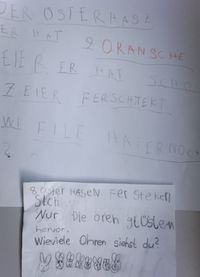 DER OSTERHASE
ER HAT 9 ORANSCHE
EIER ER HAT SCHO
7 EIER FERSCHTEKT
WI FILE HAT ER NOCH
?
8 Oster HASEN FerSteken
Sich
Nur Die oren
hervor.
Wieviele Ohren siehst du?